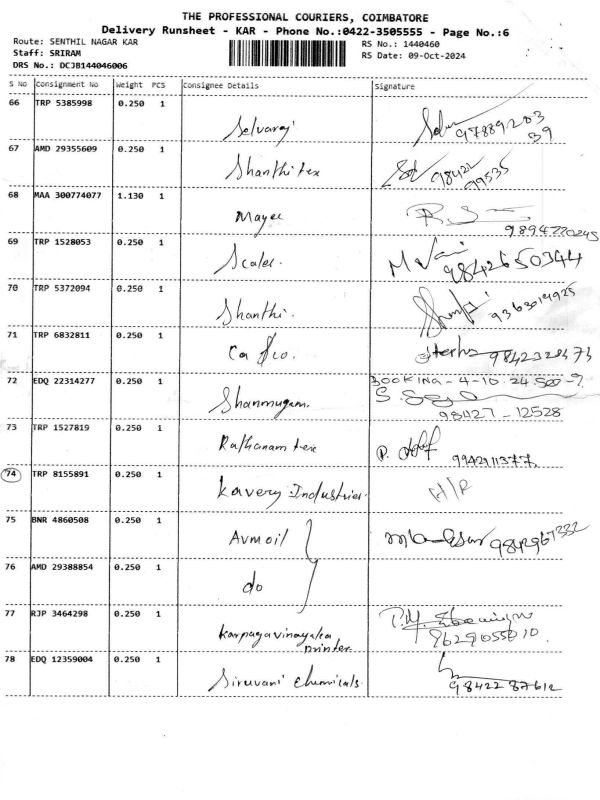 THE PROFESSIONAL COURIERS, COIMBATORE
Delivery Runsheet - KAR - Phone No.:0422-3505555 - Page No.:6
Route: SENTHIL NAGAR KAR RS No.: 1440460
Staff: SRIRAM RS Date: 09-Oct-2024
DRS No.: DCJB144046006
S No Consignment No Weight PCS Consignee Details Signature
66 TRP 5385998 0.250 1 Selvaraj
67 AMD 29355609 0.250 1 Shanthi tex 98422 99535
68 MAA 300774077 1.130 1 Mayee
69 TRP 1528053 0.250 1 Scaler 9842650344
70 TRP 5372094 0.250 1 Shanthi. 9363014925
71 TRP 6832811 0.250 1
BOOKING - 4-10.24
72 EDQ 22314277 0.250 1 Shanmugam.
98427 - 12528
73 TRP 1527819 0.250 1 Rathanam tex 9942911377
74 TRP 8155891 0.250 1 Kavery Industries.
75 BNR 4860508 0.250 1 Avm oil 9842967332
76 AMD 29388854 0.250 1 do
77 RJP 3464298 0.250 1 Karpagavinayaka
printer 9629055010.
78 EDQ 12359004 0.250 1 Siruvani Chemicals 98422 87612